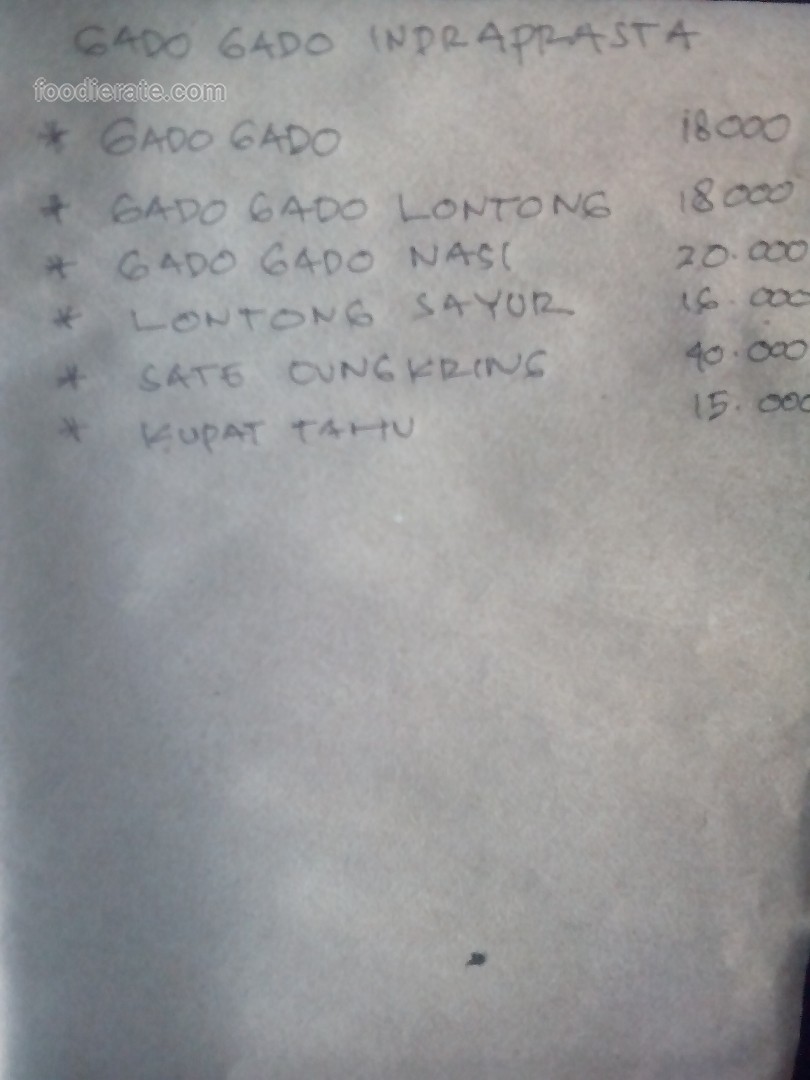 GADO GADO INDRAPRASTA
foodierate.com
* GADO GADO 18000
* GADO GADO LONTONG 18000
* GADO GADO NASI 20.000
* LONTONG SAYUR 16.000
* SATE CUNGKRING 40.000
* KUPAT TAHU 15.000